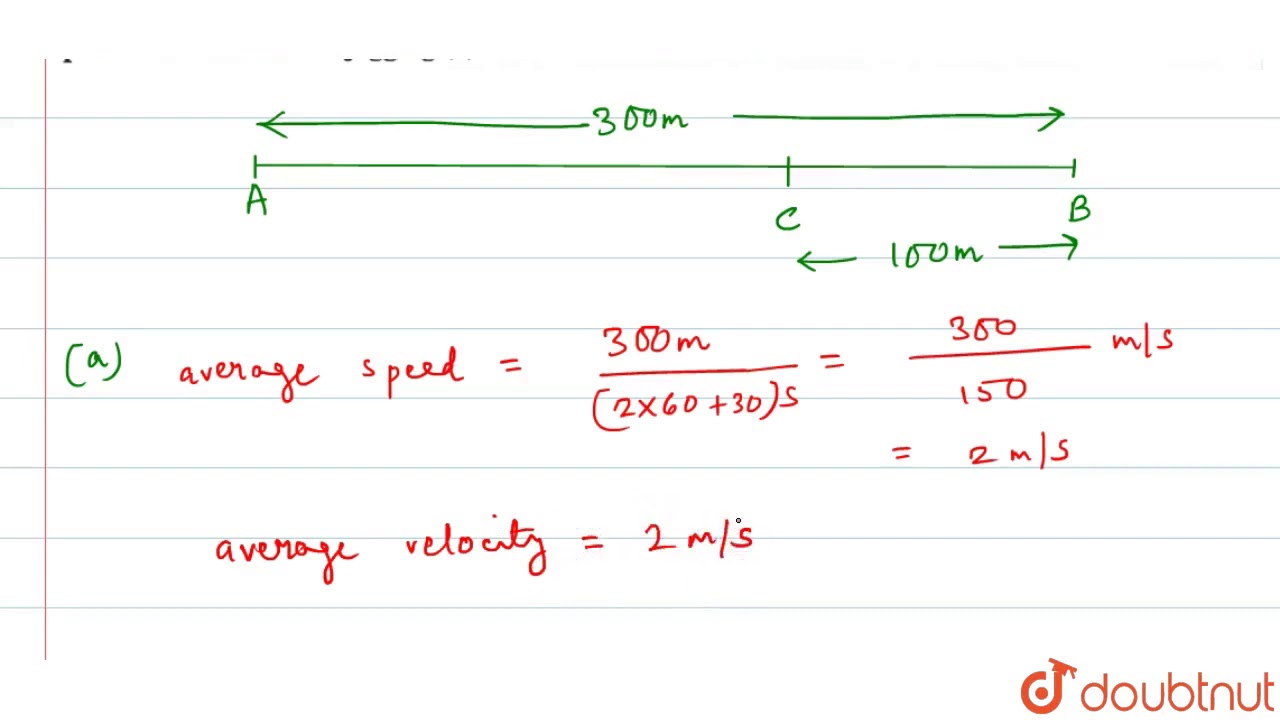 300m
A C B
100m
(a) average speed = 300m / (2×60+30)s = 300 / 150 m/s
= 2 m/s
average velocity = 2 m/s
doubtnut